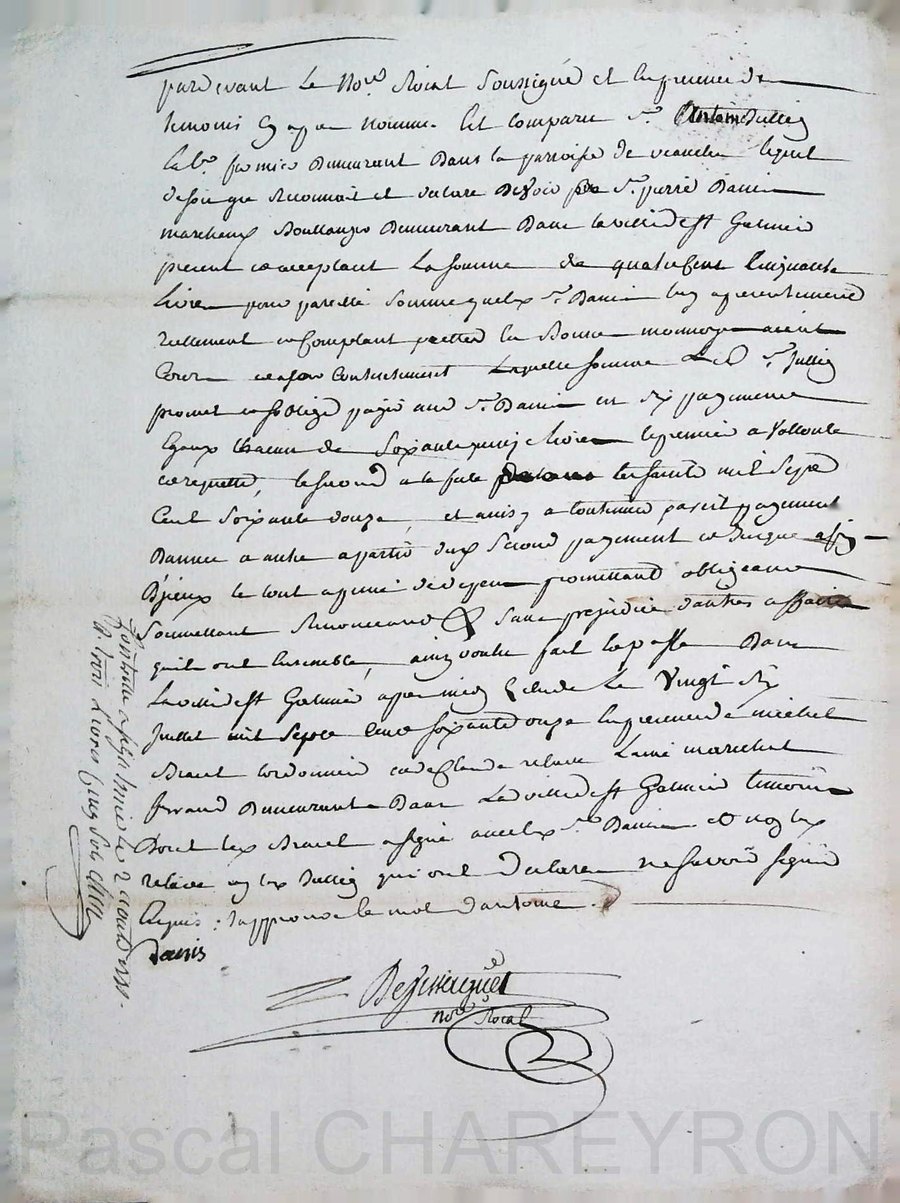 pardevant Le No.re Roial Soussigné et En presence de
temoins Cy apres nommes Est comparu S.r Antoine Jullien
demeurant Dans la parroisse de veauche lequel
de son gre Reconnoit et declare Devoir S.r pierre Danis
marchand Boullanger Demeurant Dans la ville de St Galmier
present acceptant La Somme de quatre Cent Cinquante
Livres pour pareille Somme que led. S.r Danis luy a presentement
reellement et comptant prettee En Bonne monnoye aient
Cours et a son contentement Laquelle somme Led. S.r Jullien
promet et soblige payer aud. S.r Danis en Six payements
Egaux Chacun de Soixante quinze Livres le premier
le second a la fete de la tous saints mil Sept
Cent Soixante douze, et ainsy a continuer pareil payement
Dannee a autre a partir dud. Second payement et Jusque a fin
De payement le tout a peine de depens promettant obligeant
Soumettant Renonceant & Sans prejudice dautres affaires
quils ont Ensemble, ainsy voulu fait et passe Dans
La ville de St Galmier apres midy Etude Le Vingt Six
Juillet mil Sept Cent soixante douze En presence de michel
Cordonnier et de Claude relave Laine marechal
ferrand Demeurants Dans La ville de St Galmier temoins
Dont led. a signe avec led. S.r Danis et non led.
relave ny led. Jullien qui ont declare ne savoir signer
Enquis: Japprouve le mot dantoine.
danis
No.re Roial
Controlle a St Galmier le 2 aout 1772.
R. trois Livres Cinq Sols
Pascal CHAREYRON